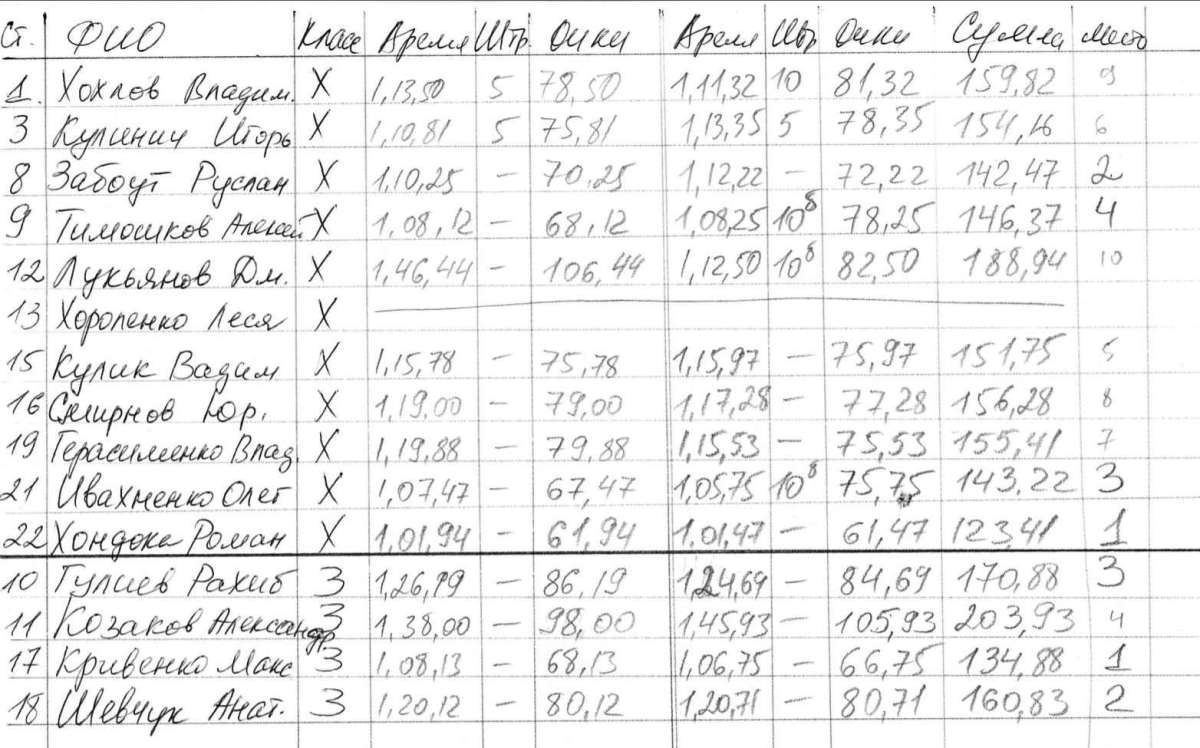 Ст. ФИО Класс Время Штр. Очки Время Штр Очки Сумма место
1. Хохлов Владим. X 1,13,50 5 78,50 1,11,32 10 81,32 159,82 9
3 Кулинич Игорь X 1,10,81 5 75,81 1,13,35 5 78,35 154,16 6
8 Забоут Руслан X 1,10,25 — 70,25 1,12,22 — 72,22 142,47 2
9 Тимошков Алексей X 1,08,12 — 68,12 1,08,25 10 78,25 146,37 4
12 Лукьянов Дм. X 1,46,44 — 106,44 1,12,50 10 82,50 188,94 10
13 Хороленко Леся X
15 Кулик Вадим X 1,15,78 — 75,78 1,15,97 — 75,97 151,75 5
16 Смирнов Юр. X 1,19,00 — 79,00 1,17,28 — 77,28 156,28 8
19 Герасименко Влад. X 1,19,88 — 79,88 1,15,53 — 75,53 155,41 7
21 Ивахненко Олег X 1,07,47 — 67,47 1,05,75 10 75,75 143,22 3
22 Хондока Роман X 1,01,94 — 61,94 1,01,47 — 61,47 123,41 1
10 Гулиев Рахиб З 1,26,19 — 86,19 1,24,69 — 84,69 170,88 3
11 Козаков Александр З 1,38,00 — 98,00 1,45,93 — 105,93 203,93 4
17 Кривенко Макс З 1,08,13 — 68,13 1,06,75 — 66,75 134,88 1
18 Шевчук Анат. З 1,20,12 — 80,12 1,20,71 — 80,71 160,83 2